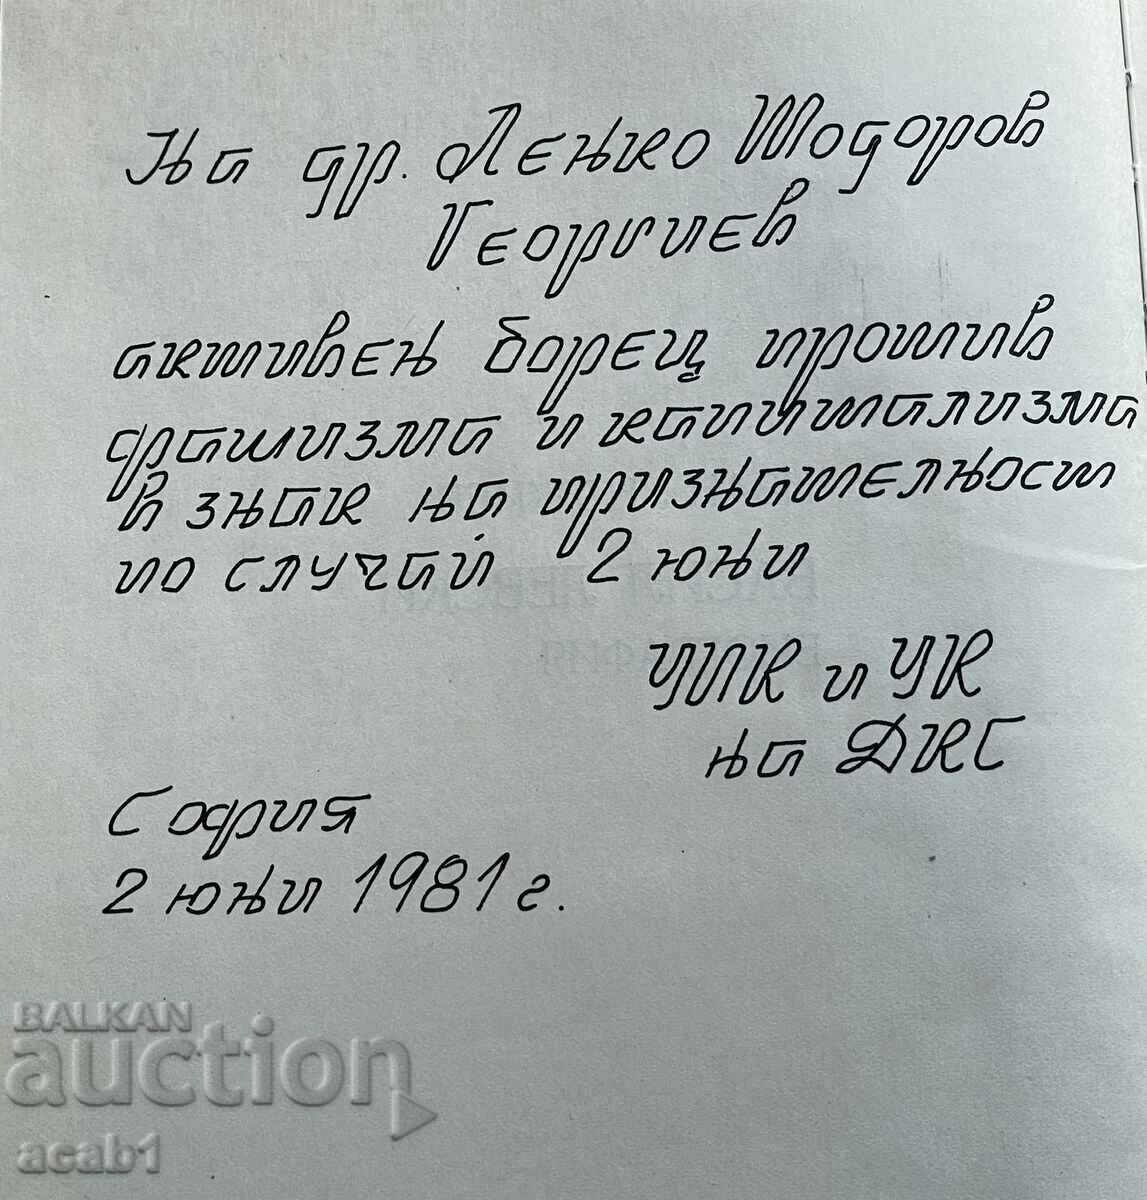 На др. Ленко Тодоров
Георгиев
активен борец против
фашизма и капитализма
в знак на признателност
по случай 2 юни
УПК и УК
на ДКС
София
2 юни 1981 г.
BALKAN
auction
acab1